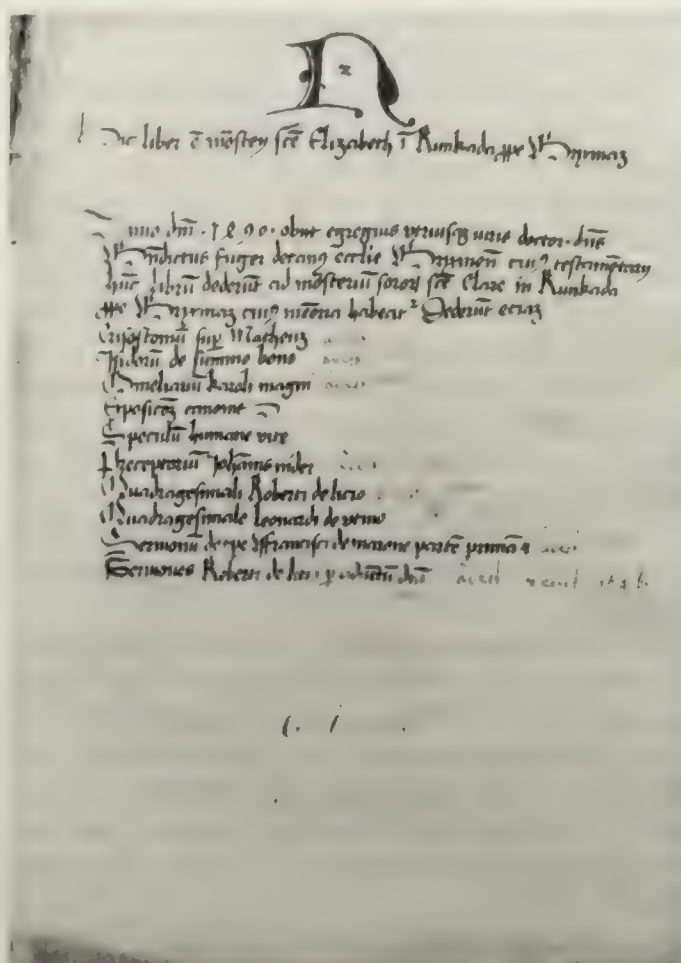 N
z
Hic liber ē mōstery scē Elizabeth ī Runkada ꝓpe Brixinaz
Anno dm̄ · 1490 · obiit egregius vtriusqz iuris doctor · dn̄s
Bn̄dictus fuger decanꝯ ecclie Brixinen̄ cuiꝯ testamentary
hūc librū dederūt ad mōsteriū sororꝝ scē Clare in Runkada
ꝓpe Brixinaz cuiꝯ mēoria habeat᷑ Dederūt eciaz
Crisostomū sup̄ Matheuz
Isidorū de summo bono
Omeliariū karoli magni
Exposicōz
Speculū humane vite
Preceptoriū Johānis nider
Quadragesimali Roberti de licio
Quadragesimale leonardi de vtino
Sermonū de tpe ffrancisci de marone partē primā
Sermones Roberti de lici · ꝑ aduētū dn̄i